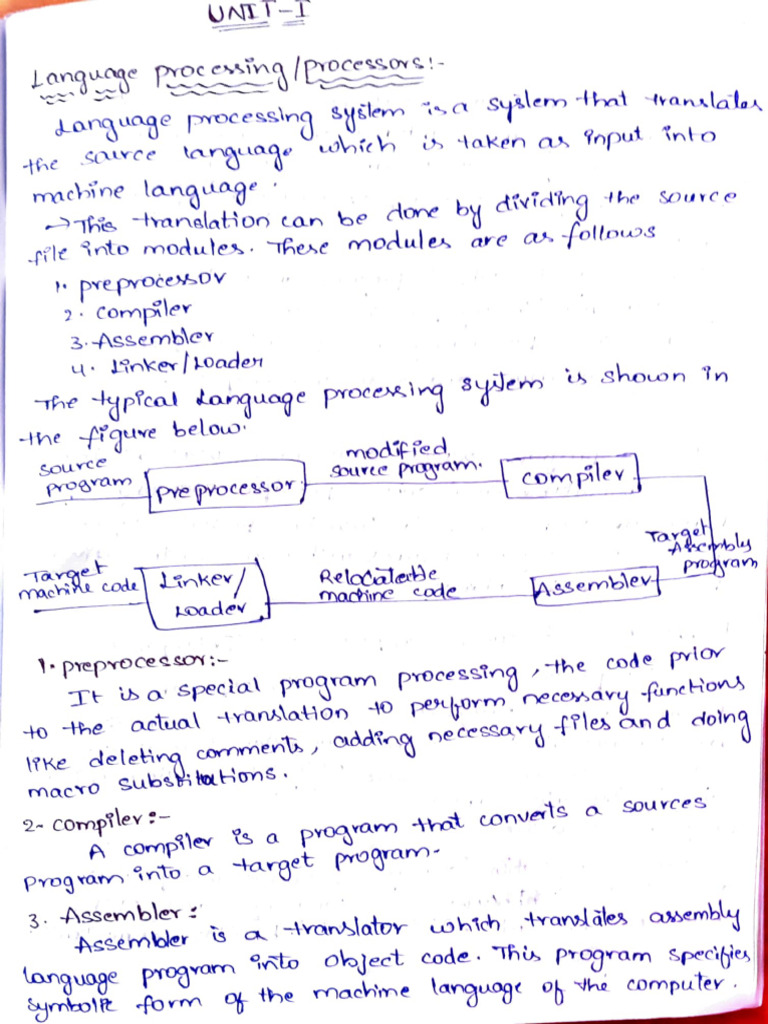 UNIT-I
Language processing/processors:-
Language processing system is a system that translates
the source language which is taken as input into
machine language.
→This translation can be done by dividing the source
file into modules. These modules are as follows
1. preprocessor
2. compiler
3. Assembler
4. Linker/Loader
The typical Language processing system is shown in
the figure below.
source
program
preprocessor
modified
source program.
compiler
Target
Assembly
program
Target
machine code
Linker/
Loader
Relocateable
machine code
Assembler
1. preprocessor:-
It is a special program processing, the code prior
to the actual translation to perform necessary functions
like deleting comments, adding necessary files and doing
macro substitutions.
2- compiler:-
A compiler is a program that converts a sources
program into a target program.
3. Assembler:
Assembler is a translator which translates assembly
language program into object code. This program specifies
symbolic form of the machine language of the computer.